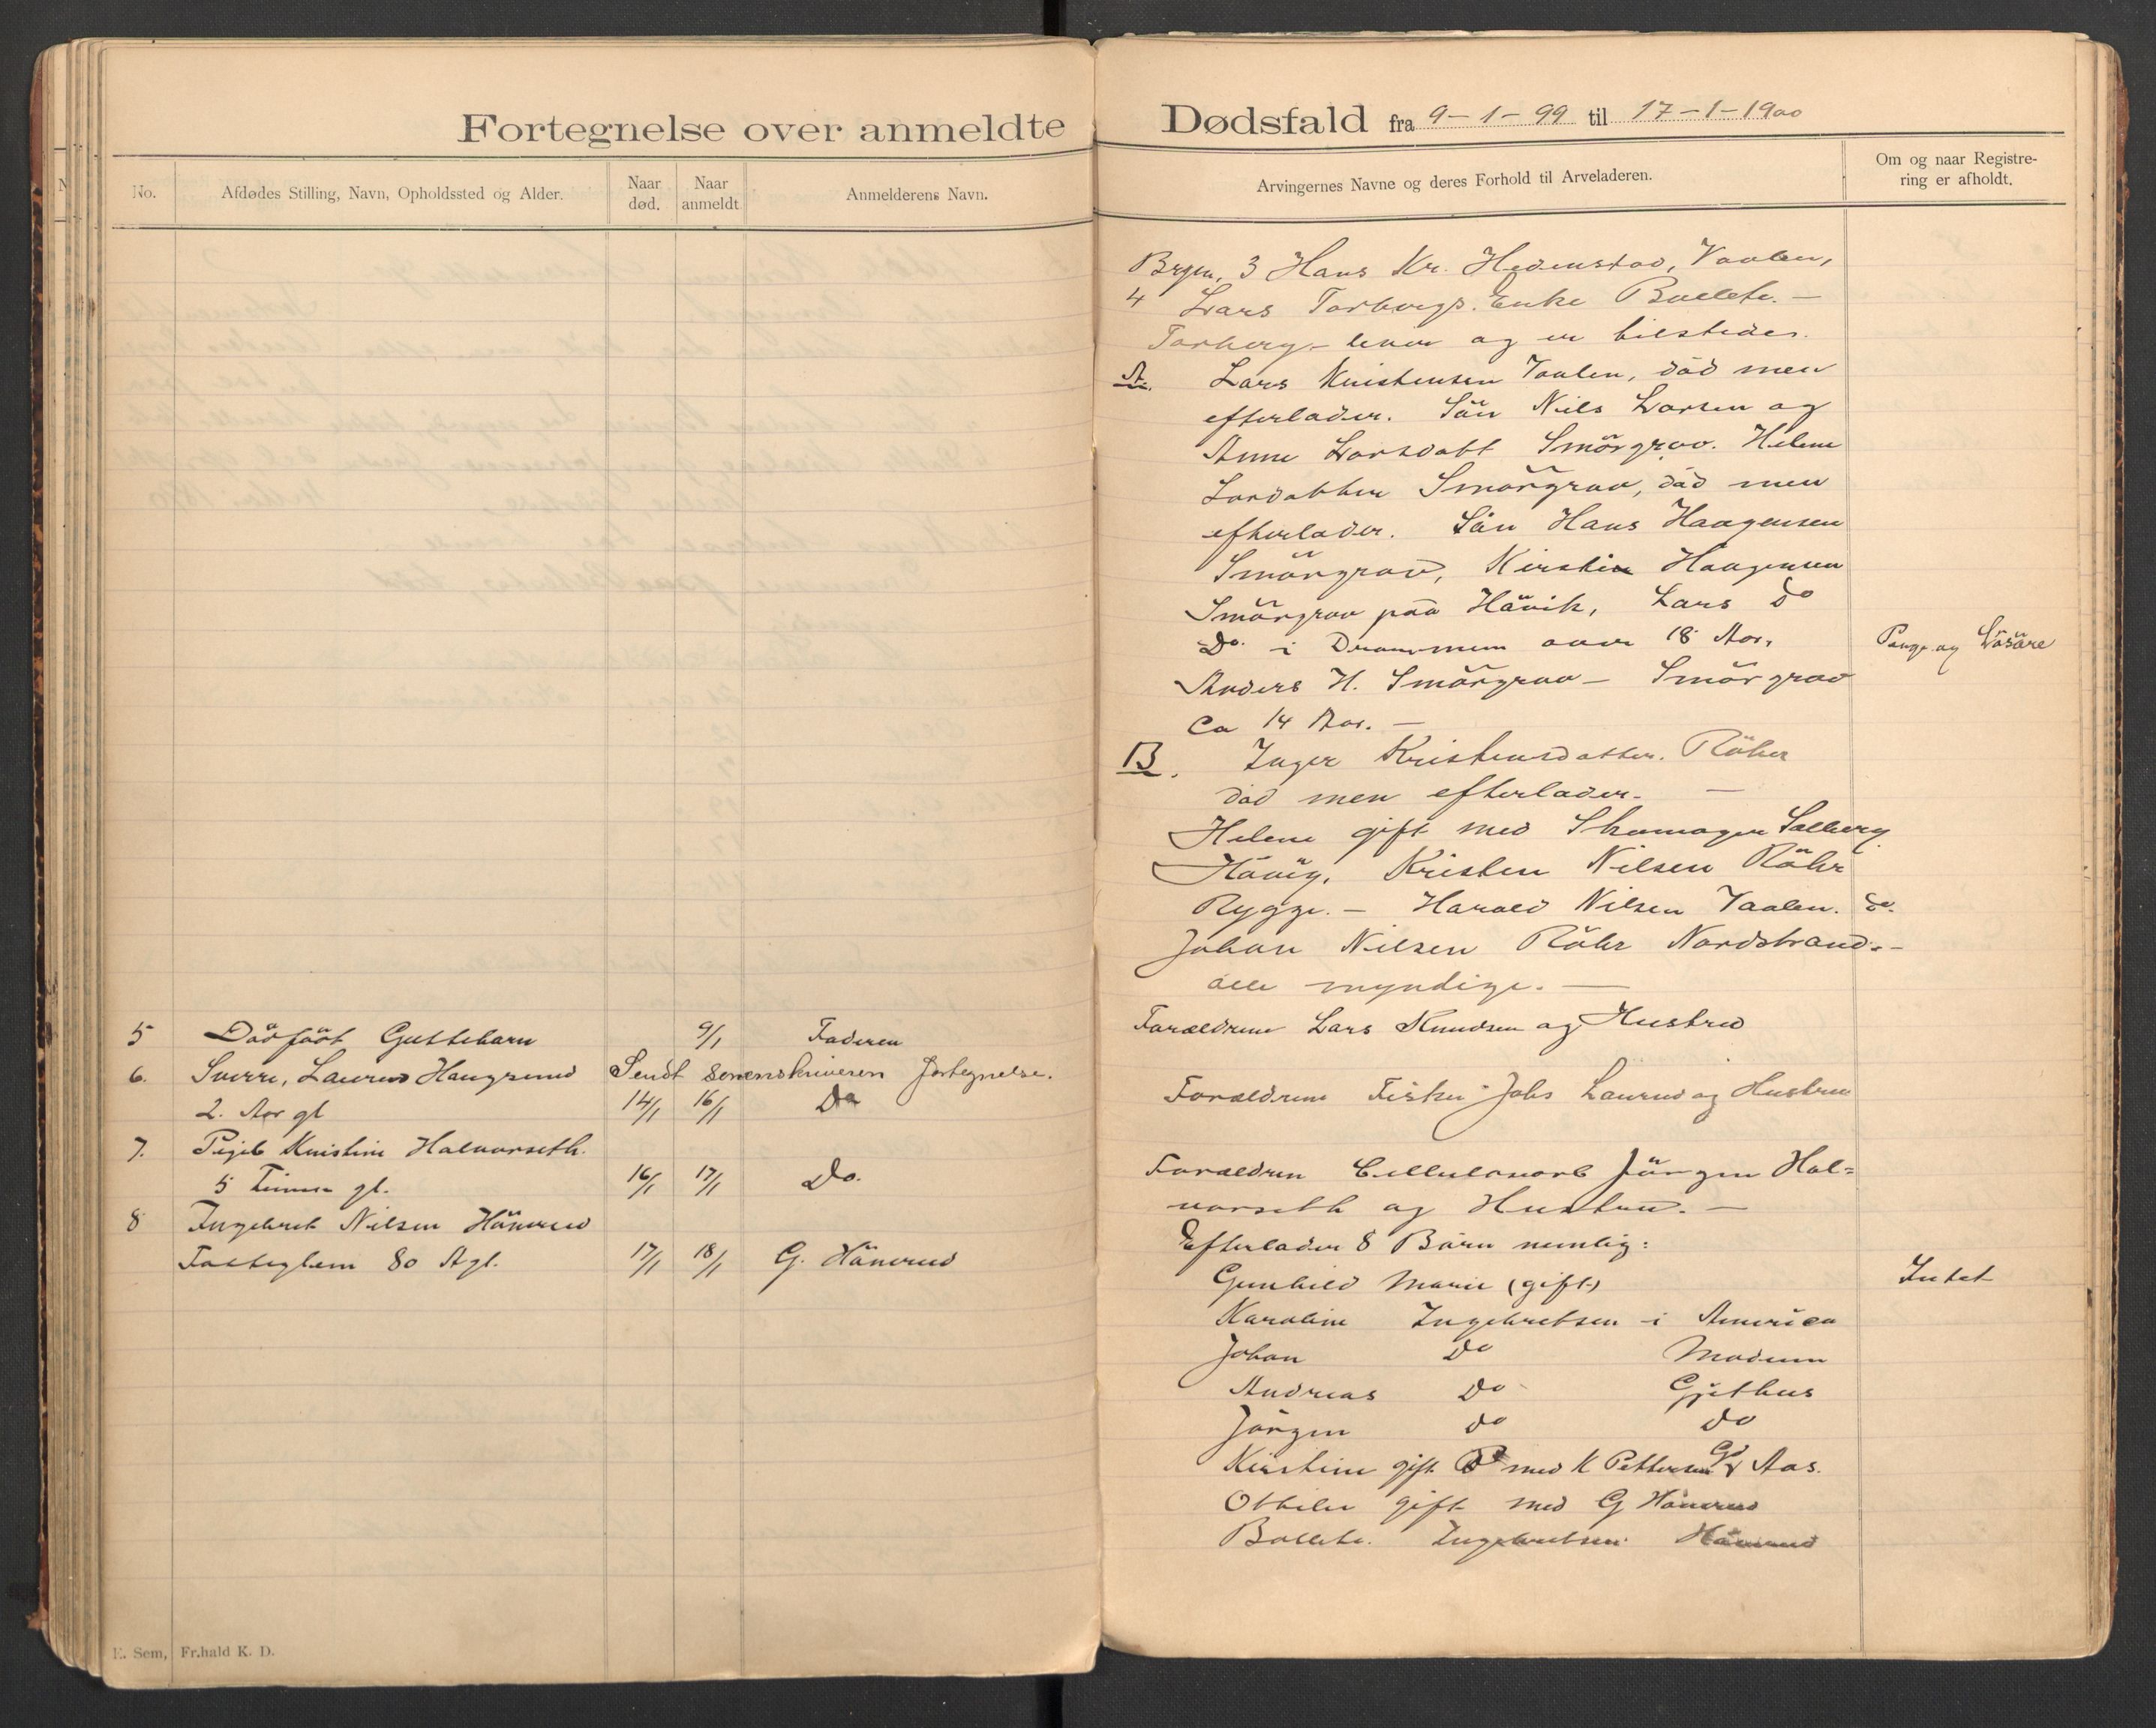 Fortegnelse over anmeldte
No.
Afdødes Stilling, Navn, Opholdssted og Alder.
Naar død.
Naar anmeldt
Anmelderens Navn.
5 Dödfödt Guttebarn 9/1 Faderen
6. Sverre, Laurus Haugsund Sendt Sorenskriveren Fortegnelse.
2. Aar gl 14/1 16/1 Do
7. Pigeb Kristine Halvorseth.
5 Timer gl. 16/1 17/1 Do.
8 Ingebret Nilsen Hönerud
80 Agl. 17/1 18/1 G. Hönerud
E. Sem, Fr.hald K. D.
Dødsfald fra 9-1-99 til 17-1-1900
Arvingernes Navne og deres Forhold til Arveladeren.
Om og naar Registrering er afholdt.
3 Hans Kr. Hedenstad, Vaalen,
4 Lars Torbergs. Enke Bollete. —
Torberg - lever og er tilstede.
A. Lars Kristensen Vaalen, död men
efterlader. Sön Niels Larsen og
Anne Larsdatt Smörgrav. Helene
Larsdatter Smörgrav, död men
efterlader. Sön Hans Haagensen
Smörgrav, Kirstin Haagensen
Smörgrav paa Hävik, Lars Do
Do. i Drammen over 18 Aar, Penge og Lösöre
Anders H. Smörgrav - Smörgrav
Ca 14 Aar. —
B. Inger Kristensdatter. Röhr
död men efterlader. —
Helene gift med Skomager Solberg
Hövig, Kristen Nilsen Röhr
Rygge. — Harald Nilsen Vaalen. do.
Johan Nilsen Röhr Nordstrand. —
alle myndige. —
Forældrene Lars Knudsen og Hustru
Forældrene Fisker Johs Laurus og Hustru
Forældren Cellulosearb Jörgen Hal=
vorseth og Hustru. —
Efterlader 8 Börn nemlig:
Gunhild Marie (gift) Intet
Karoline Ingebretsen i America
Johan Do Modum
Andreas Do Gjethus
Jörgen do do
Kirstine gift med K Pettersen Aas.
Ottilie gift med G Hönerud
Bollete. Ingebretsen Hönerud